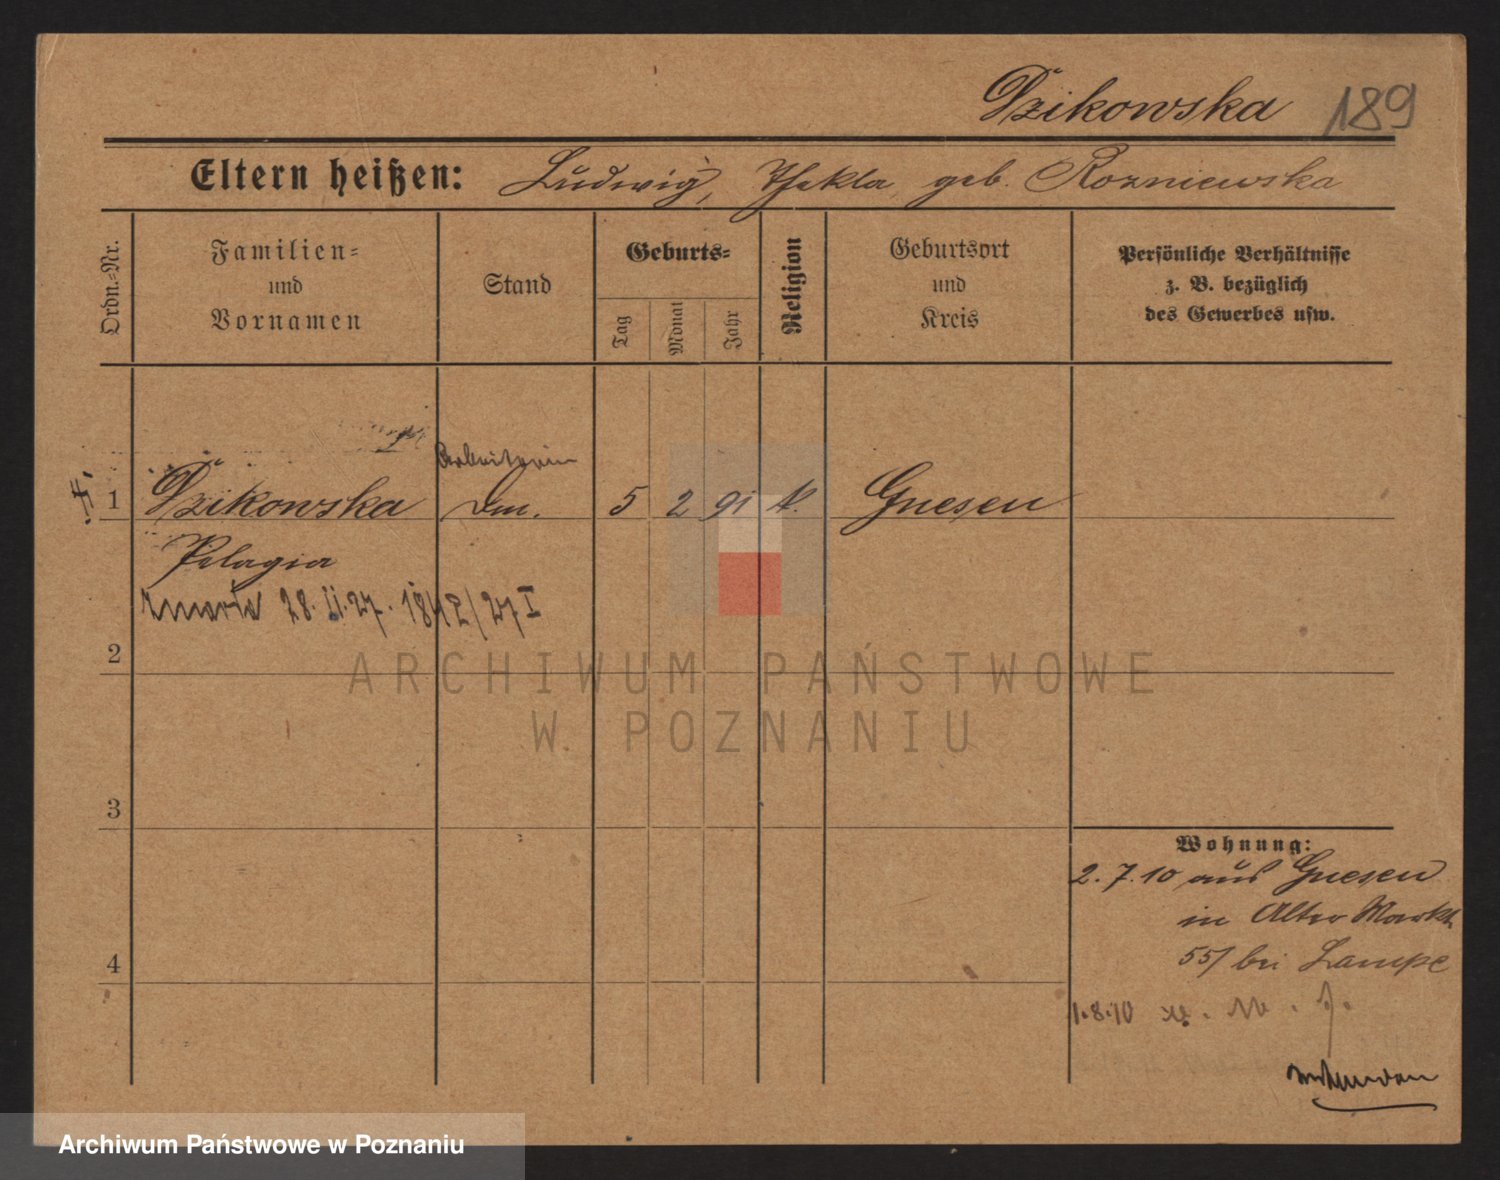 Dzikowska 189
Eltern heißen: Ludwig, Thekla, geb. Rozniewska
Ordn.-Nr.
Familien=
und
Vornamen
Stand
Geburts=
Tag
Monat
Jahr
Religion
Geburtsort
und
Kreis
Persönliche Verhältnisse
z. B. bezüglich
des Gewerbes usw.
Arbeiterin
1 Dzikowska 5 2 91 k. Gnesen
Pelagia
zmarła 28. II. 27. 1842/27 I
2
3
4
Wohnung:
2.7.10 aus Gnesen
in Alter Markt
55/ bei Lampe
1.8.10
ARCHIWUM PAŃSTWOWE
W POZNANIU
Archiwum Państwowe w Poznaniu